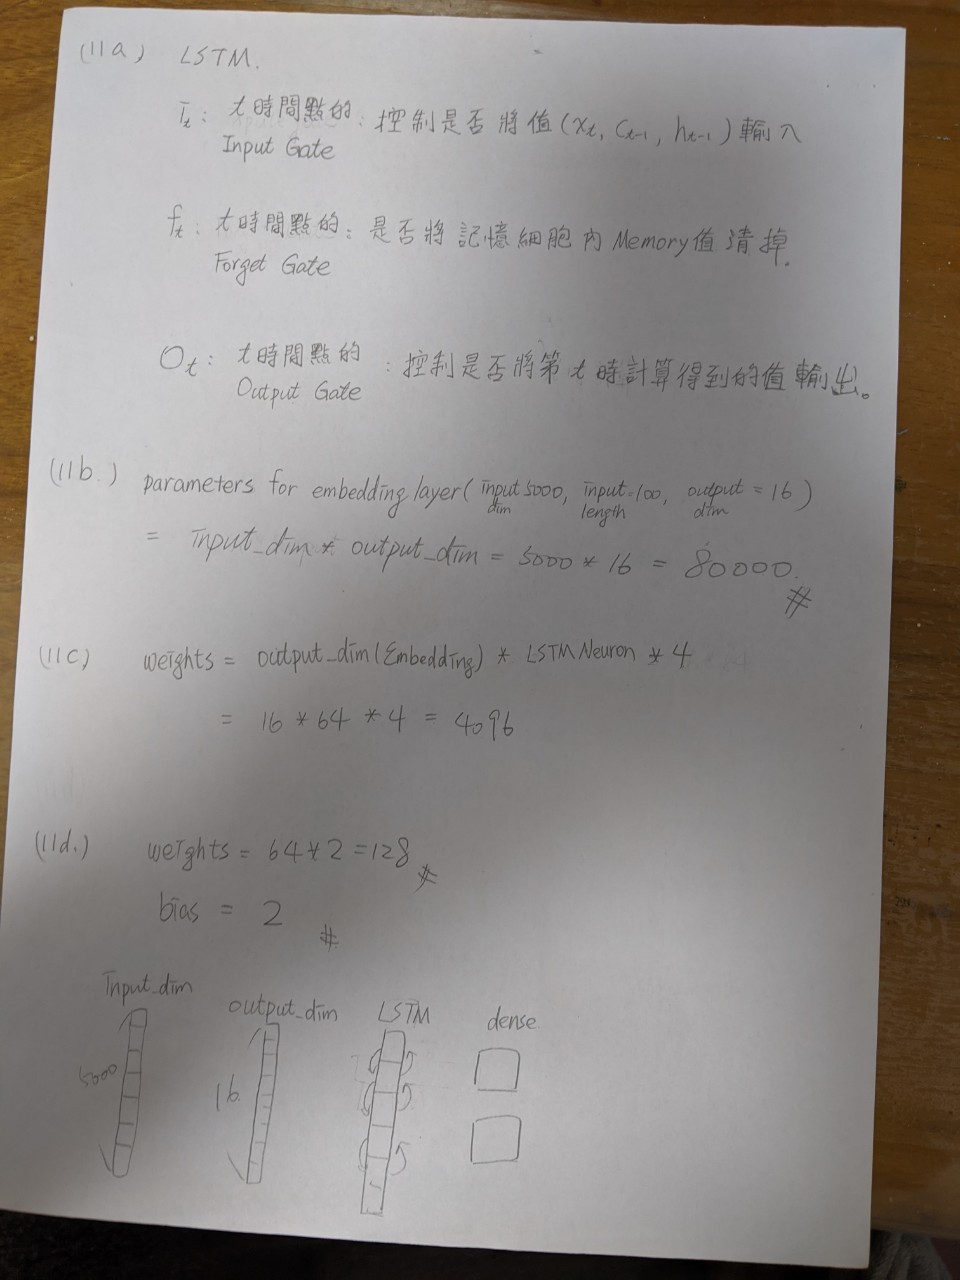 (11a) LSTM.
it: t時間點的: 控制是否將值(xt, Ct-1, ht-1)輸入
Input Gate
ft: t時間點的: 是否將記憶細胞內Memory值清掉.
Forget Gate
Ot: t時間點的: 控制是否將第t時計算得到的值輸出。
Output Gate
(11b.) parameters for embedding layer(input dim 5000, input length=100, output dim = 16)
= input_dim * output_dim = 5000 * 16 = 80000. #
(11c) weights = output_dim(Embedding) * LSTM Neuron * 4
= 16 * 64 * 4 = 4096
(11d.) weights = 64*2=128 #
bias = 2 #
input_dim output_dim LSTM dense
5000 16